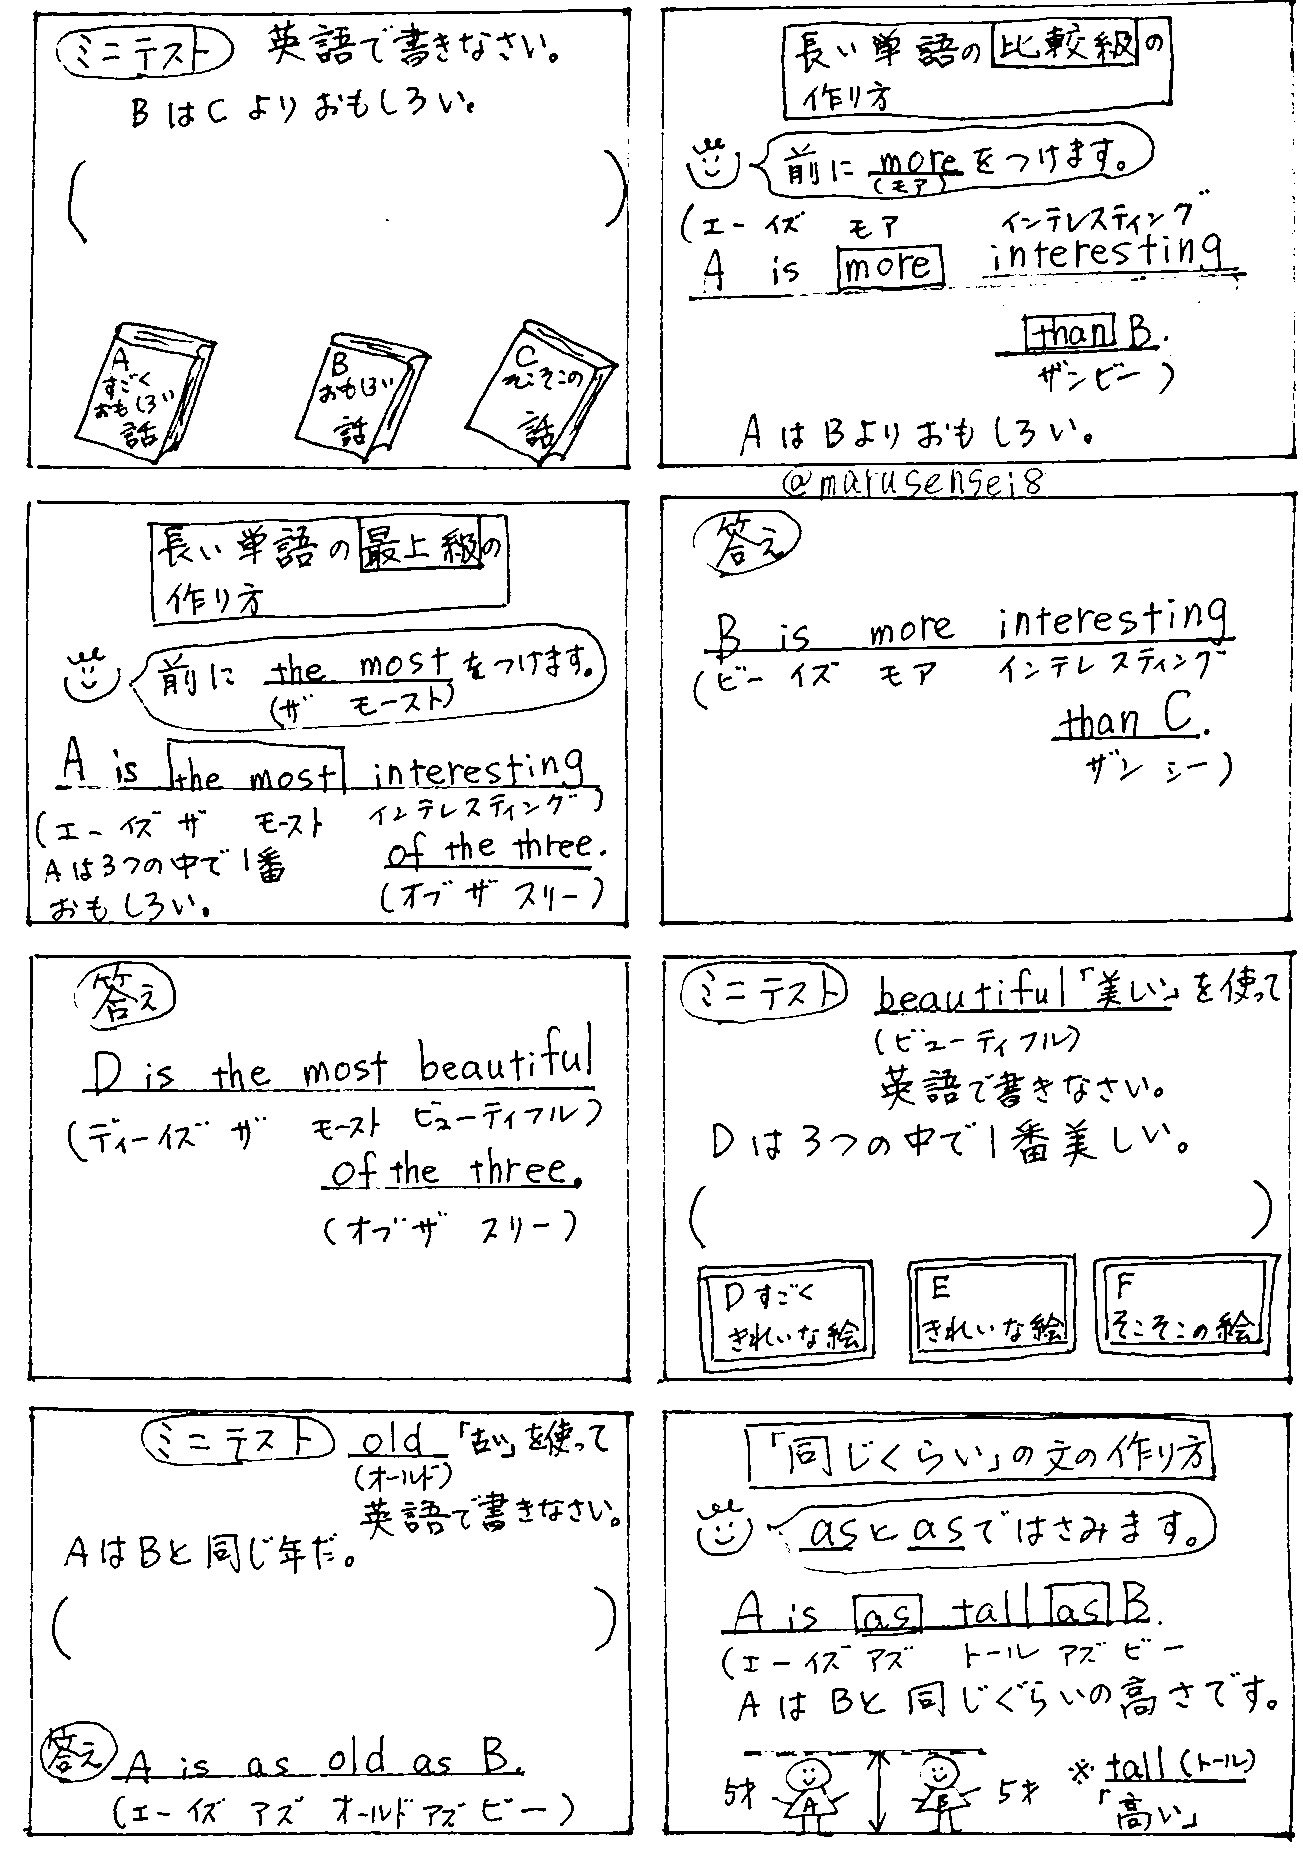 長い単語の比較級の
作り方
前に more をつけます。
(モア)
(エー イズ モア インテレスティング
A is more interesting
than B.
ザン ビー)
AはBよりおもしろい。
ミニテスト 英語で書きなさい。
BはCよりおもしろい。
( )
A
すごく
おもしろい
話
B
おもしろい
話
C
そこそこの
話
@marusensei8
答え
B is more interesting
(ビー イズ モア インテレスティング
than C.
ザン シー)
長い単語の最上級の
作り方
前に the most をつけます。
(ザ モースト)
A is the most interesting
(エー イズ ザ モースト インテレスティング)
of the three.
(オブ ザ スリー)
Aは3つの中で1番
おもしろい。
ミニテスト beautiful「美しい」を使って
(ビューティフル)
英語で書きなさい。
Dは3つの中で1番美しい。
( )
D すごく
きれいな絵
E
きれいな絵
F
そこそこの絵
答え
D is the most beautiful
(ディー イズ ザ モースト ビューティフル)
of the three.
(オブ ザ スリー)
「同じくらい」の文の作り方
asとasではさみます。
A is as tall as B.
(エー イズ アズ トール アズ ビー
AはBと同じぐらいの高さです。
5才 A B 5才
※tall(トール)
「高い」
ミニテスト old「古い」を使って
(オールド)
英語で書きなさい。
AはBと同じ年だ。
( )
答え A is as old as B.
(エー イズ アズ オールド アズ ビー)